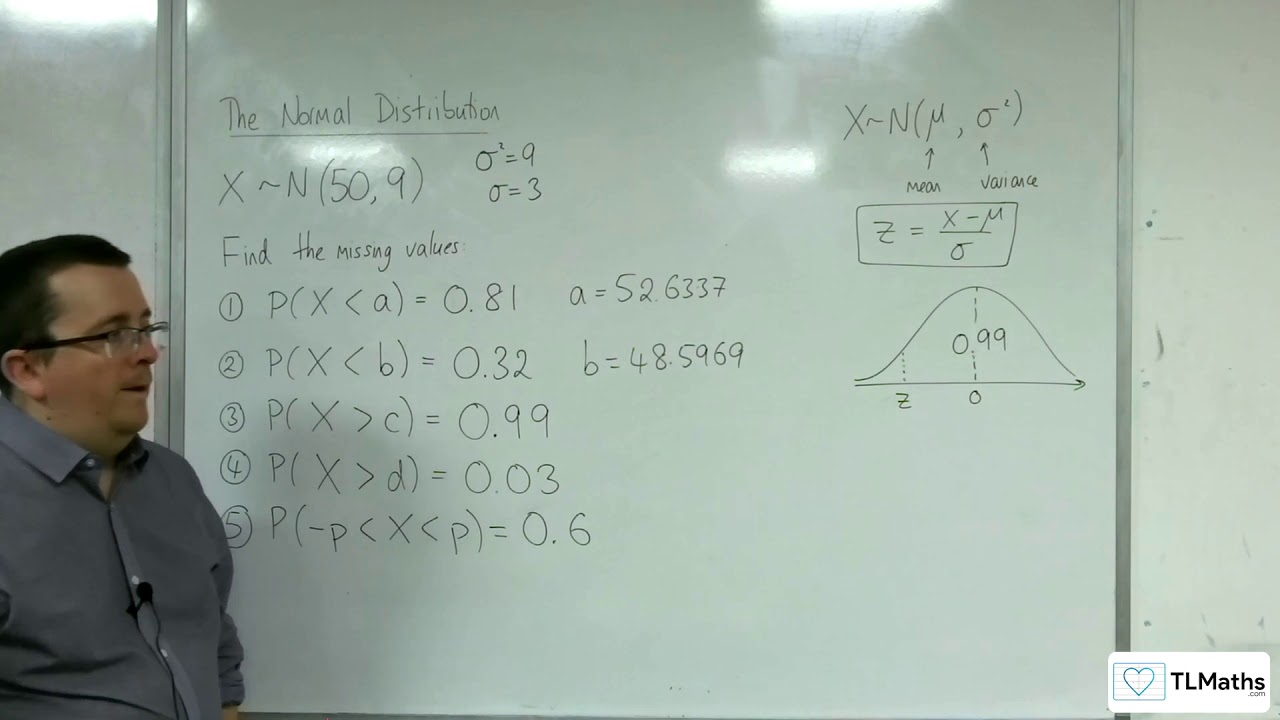 The Normal Distribution
X ~ N(50, 9)
σ² = 9
σ = 3
Find the missing values:
① P(X < a) = 0.81 a = 52.6337
② P(X < b) = 0.32 b = 48.5969
③ P(X > c) = 0.99
④ P(X > d) = 0.03
⑤ P(-p < X < p) = 0.6
X ~ N(μ, σ²)
↑ ↑
mean variance
z = (x - μ)/σ
0.99
z 0
TLMaths
.com